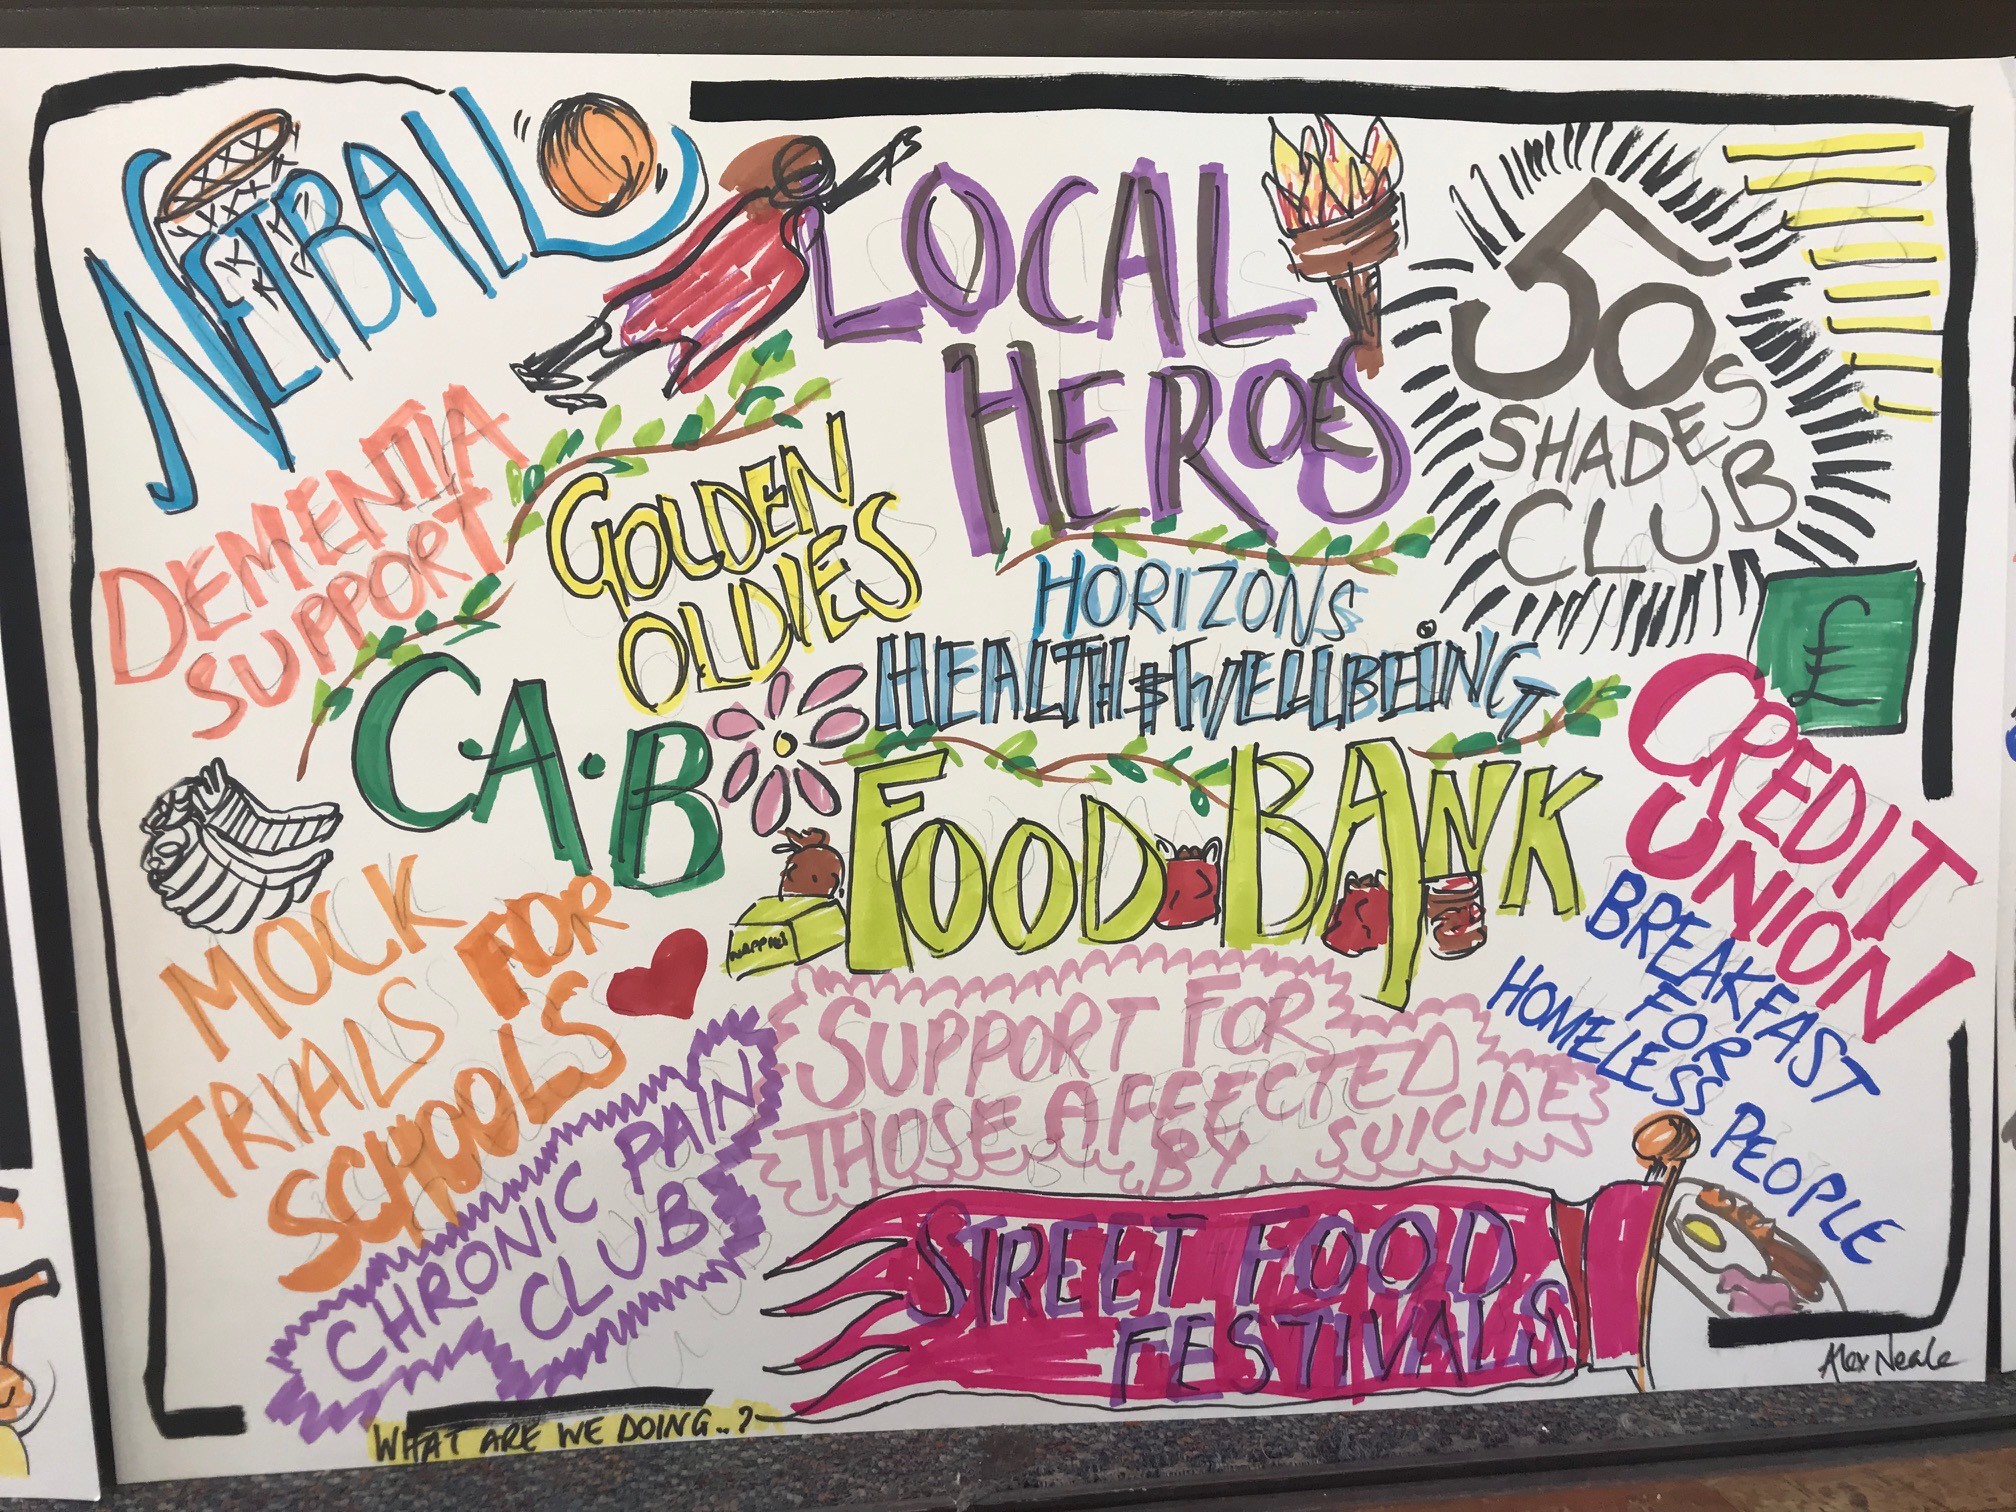 NETBALL
LOCAL
HEROES
50
SHADES
CLUB
DEMENTIA
SUPPORT
GOLDEN
OLDIES
HORIZONS
HEALTH & WELLBEING
£
C.A.B
FOOD BANK
NAPPIES
CREDIT
UNION
MOCK
TRIALS FOR
SCHOOLS
BREAKFAST
FOR
HOMELESS PEOPLE
SUPPORT FOR
THOSE AFFECTED
BY SUICIDE
CHRONIC PAIN
CLUB
STREET FOOD
FESTIVALS
Alex Neale
WHAT ARE WE DOING..?